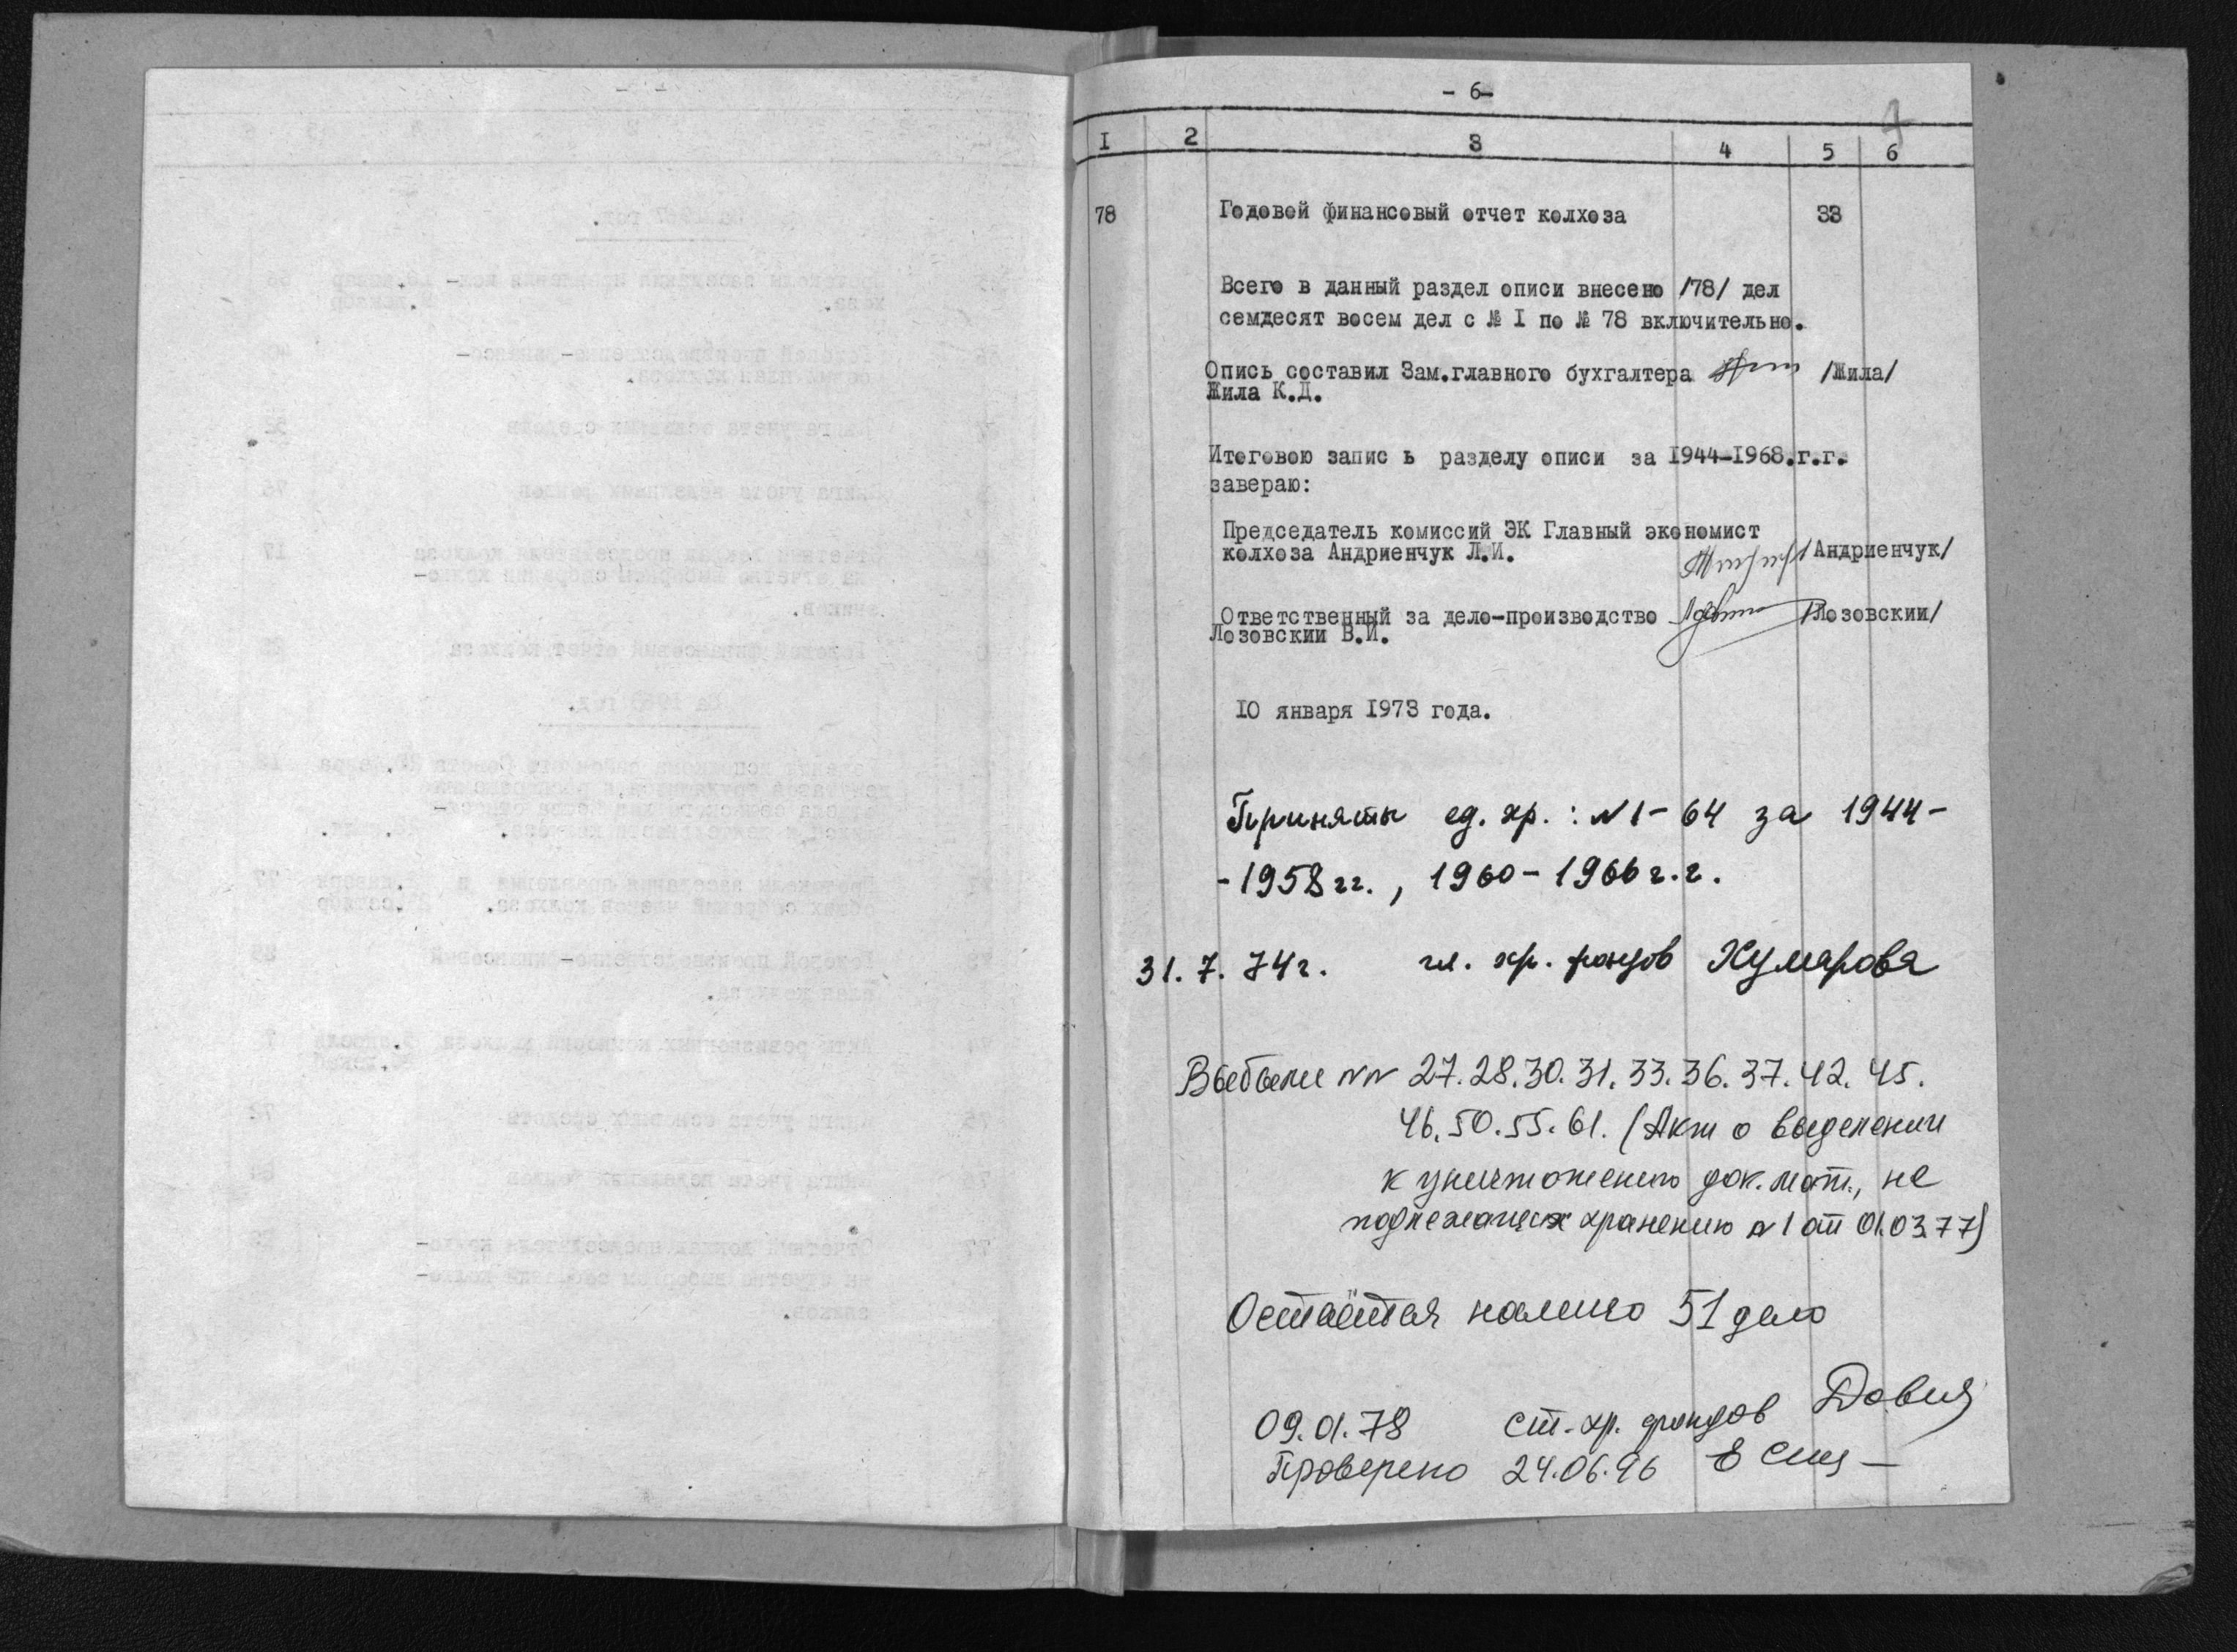 - 6 -
I 2 3 4 5 6
78 Годовой финансовый отчет колхоза 33
Всего в данный раздел описи внесено /78/ дел
семдесят восем дел с № I по № 78 включительно.
Опись составил Зам.главного бухгалтера /Жила/
Жила К.Д.
Итоговою запис ь разделу описи за 1944-1968.г.г.
завераю:
Председатель комиссий ЭК Главный экономист
колхоза Андриенчук Л.И. /Андриенчук/
Ответственный за дело-производство /Лозовскии/
Лозовскии В.И.
10 января 1973 года.
Приняты ед. хр. : N 1 - 64 за 1944 -
- 1958 гг. , 1960 - 1966 г.г.
31. 7. 74 г. гл. хр. фондов Хумарова
Выбыли NN 27. 28. 30. 31. 33. 36. 37. 42. 45.
46. 50. 55. 61. (Акт о выделении
к уничтожению док. мат., не
подлежащих хранению N 1 от 01.03.77)
Остаётся налицо 51 дело
09.01.78 ст. хр. фондов
Проверено 24.06.96